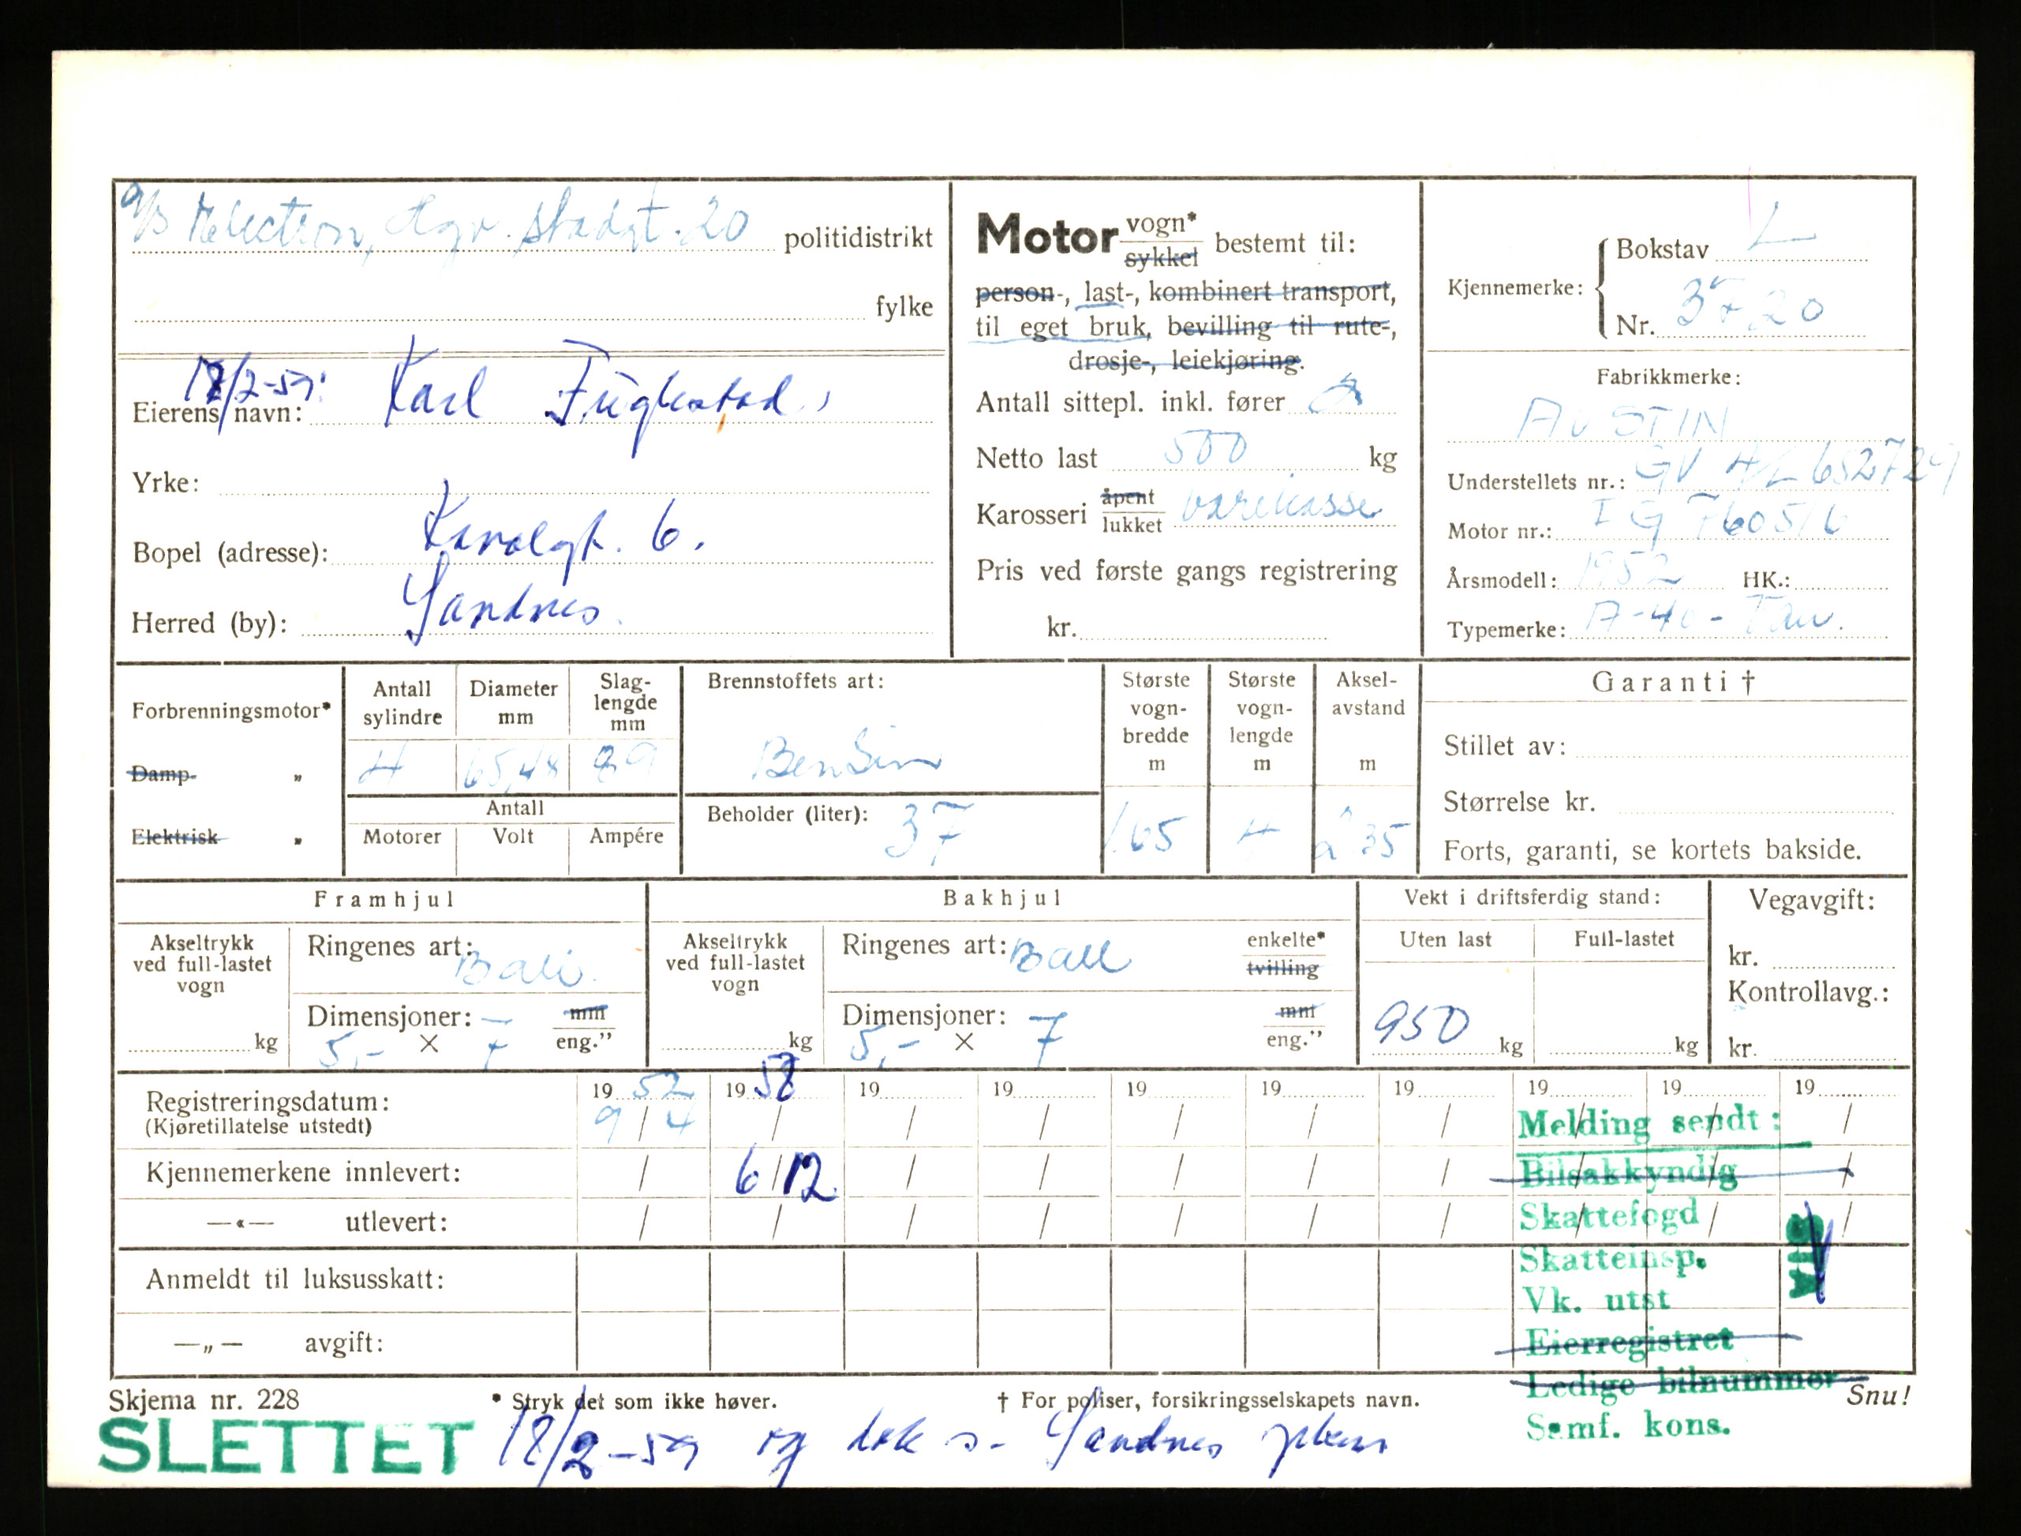 A/S Election, Agv. stadgt. 20 politidistrikt
fylke
18/2-59:
Eierens navn: Karl Fuglestad,
Yrke:
Bopel (adresse): Kanalgt. 6.
Herred (by): Sandnes.
Motor vogn* sykkel bestemt til:
person-, last-, kombinert transport,
til eget bruk, bevilling til rute-,
drosje-, leiekjøring.
Antall sittepl. inkl. fører 2
Netto last 500 kg
Karosseri åpent lukket varekasse
Pris ved første gangs registrering
kr.
Kjennemerke: Bokstav L
Nr. 3720
Fabrikkmerke:
AUSTIN
Understellets nr.: GV A/L 652729
Motor nr.: IG 760516
Årsmodell: 1952 HK.:
Typemerke: A-40-Van.
Forbrenningsmotor*
Damp- „
Elektrisk „
Antall sylindre
4
Diameter mm
65,48
Slag-
lengde
mm
89
Antall
Motorer Volt Ampére
Brennstoffets art:
Bensin
Beholder (liter): 37
Største
vogn-
bredde
m
1.65
Største
vogn-
lengde
m
4
Aksel-
avstand
m
2 35
Garanti †
Stillet av:
Størrelse kr.
Forts, garanti, se kortets bakside.
Framhjul
Akseltrykk
ved full-lastet
vogn
kg
Ringenes art: Ball.
Dimensjoner: mm
5,- × 7 eng.”
Bakhjul
Akseltrykk
ved full-lastet
vogn
kg
Ringenes art: Ball enkelte* tvilling
Dimensjoner: mm
5,- × 7 eng.”
Vekt i driftsferdig stand:
Uten last Full-lastet
950 kg kg
Vegavgift:
kr.
Kontrollavg.:
kr.
Registreringsdatum: 1952 1958 19 19 19 19 19 19 19 19
(Kjøretillatelse utstedt) 9/4 / / / / / / / / /
Kjennemerkene innlevert: / 6/12 / / / / / / / /
—«— utlevert: / / / / / / / / / /
Anmeldt til luksusskatt:
—„— avgift:
Melding sendt:
Bilsakkyndig
Skattefogd
Skatteinsp.
Vk. utst
Eierregistret
Ledige bilnummer
Samf. kons.
Skjema nr. 228 * Stryk det som ikke høver. † For poliser, forsikringsselskapets navn. Snu!
SLETTET 18/2-59 og Sandnes